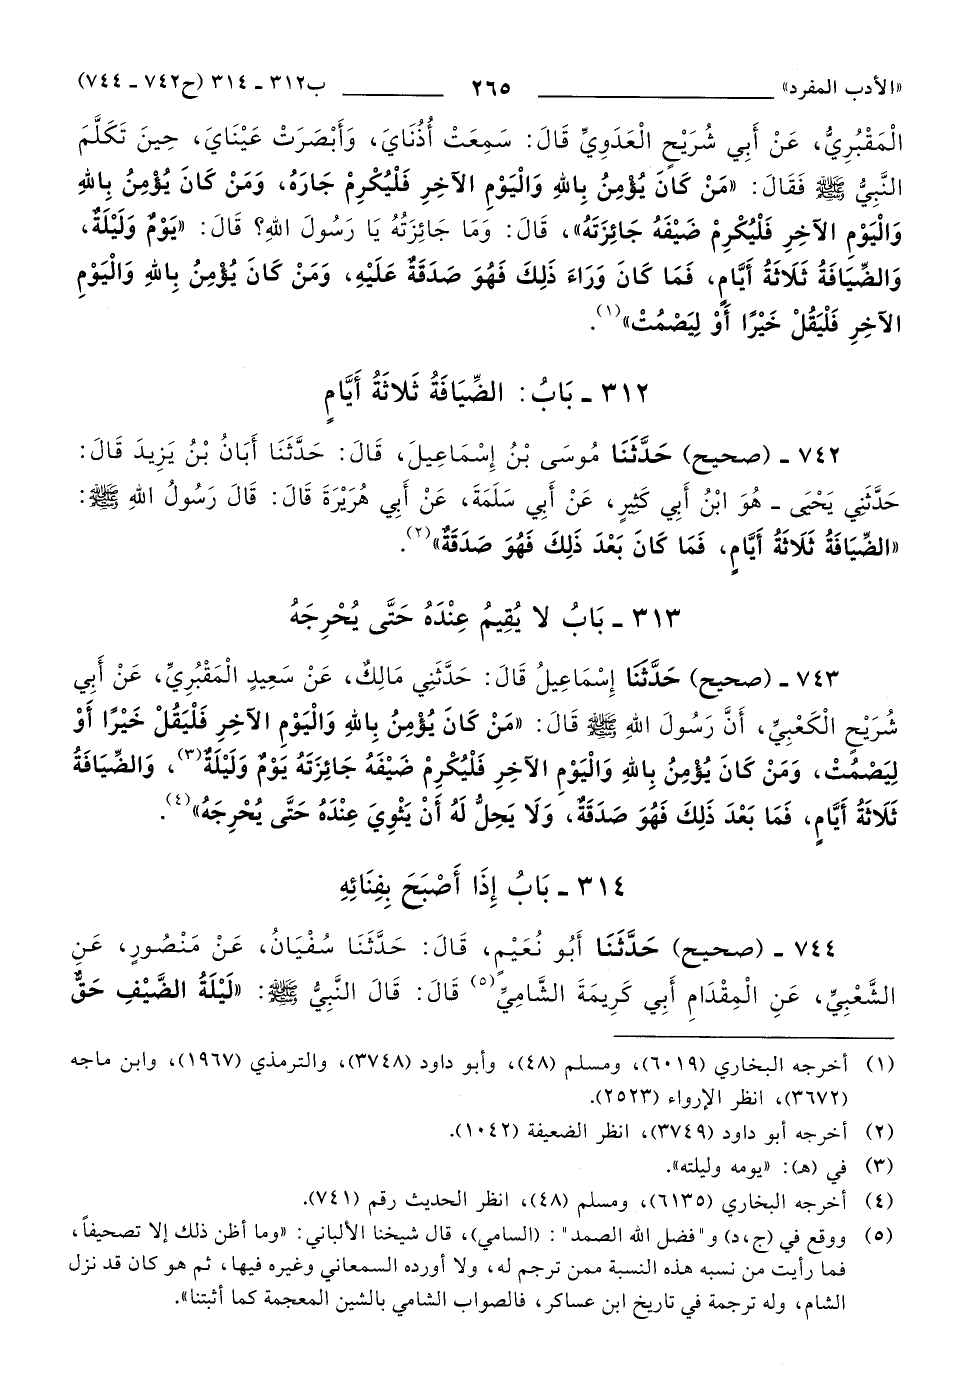 «الأدب المفرد» ٢٦٥ ب٣١٢ ـ ٣١٤ (ح٧٤٢ ـ ٧٤٤)
الْمَقْبُرِيُّ، عَنْ أَبِي شُرَيْحٍ الْعَدَوِيِّ قَالَ: سَمِعَتْ أُذُنَايَ، وَأَبْصَرَتْ عَيْنَايَ، حِينَ تَكَلَّمَ
النَّبِيُّ ﷺ فَقَالَ: «مَنْ كَانَ يُؤْمِنُ بِاللهِ وَالْيَوْمِ الآخِرِ فَلْيُكْرِمْ جَارَهُ، وَمَنْ كَانَ يُؤْمِنُ بِاللهِ
وَالْيَوْمِ الآخِرِ فَلْيُكْرِمْ ضَيْفَهُ جَائِزَتَهُ»، قَالَ: وَمَا جَائِزَتُهُ يَا رَسُولَ اللهِ؟ قَالَ: «يَوْمٌ وَلَيْلَةٌ،
وَالضِّيَافَةُ ثَلَاثَةُ أَيَّامٍ، فَمَا كَانَ وَرَاءَ ذَلِكَ فَهُوَ صَدَقَةٌ عَلَيْهِ، وَمَنْ كَانَ يُؤْمِنُ بِاللهِ وَالْيَوْمِ
الآخِرِ فَلْيَقُلْ خَيْرًا أَوْ لِيَصْمُتْ»(١).
٣١٢ ـ بَابُ: الضِّيَافَةُ ثَلاثَةُ أَيَّامٍ
٧٤٢ ـ (صحيح) حَدَّثَنَا مُوسَى بْنُ إِسْمَاعِيلَ، قَالَ: حَدَّثَنَا أَبَانُ بْنُ يَزِيدَ قَالَ:
حَدَّثَنِي يَحْيَى ـ هُوَ ابْنُ أَبِي كَثِيرٍ، عَنْ أَبِي سَلَمَةَ، عَنْ أَبِي هُرَيْرَةَ قَالَ: قَالَ رَسُولُ اللهِ ﷺ:
«الضِّيَافَةُ ثَلَاثَةُ أَيَّامٍ، فَمَا كَانَ بَعْدَ ذَلِكَ فَهُوَ صَدَقَةٌ»(٢).
٣١٣ ـ بَابُ لا يُقِيمُ عِنْدَهُ حَتَّى يُحْرِجَهُ
٧٤٣ ـ (صحيح) حَدَّثَنَا إِسْمَاعِيلُ قَالَ: حَدَّثَنِي مَالِكٌ، عَنْ سَعِيدٍ الْمَقْبُرِيِّ، عَنْ أَبِي
شُرَيْحٍ الْكَعْبِيِّ، أَنَّ رَسُولَ اللهِ ﷺ قَالَ: «مَنْ كَانَ يُؤْمِنُ بِاللهِ وَالْيَوْمِ الآخِرِ فَلْيَقُلْ خَيْرًا أَوْ
لِيَصْمُتْ، وَمَنْ كَانَ يُؤْمِنُ بِاللهِ وَالْيَوْمِ الآخِرِ فَلْيُكْرِمْ ضَيْفَهُ جَائِزَتَهُ يَوْمٌ وَلَيْلَةٌ(٣)، وَالضِّيَافَةُ
ثَلَاثَةُ أَيَّامٍ، فَمَا بَعْدَ ذَلِكَ فَهُوَ صَدَقَةٌ، وَلَا يَحِلُّ لَهُ أَنْ يَثْوِيَ عِنْدَهُ حَتَّى يُحْرِجَهُ»(٤).
٣١٤ ـ بَابُ إِذَا أَصْبَحَ بِفِنَائِهِ
٧٤٤ ـ (صحيح) حَدَّثَنَا أَبُو نُعَيْمٍ، قَالَ: حَدَّثَنَا سُفْيَانُ، عَنْ مَنْصُورٍ، عَنِ
الشَّعْبِيِّ، عَنِ الْمِقْدَامِ أَبِي كَرِيمَةَ الشَّامِيِّ(٥) قَالَ: قَالَ النَّبِيُّ ﷺ: «لَيْلَةُ الضَّيْفِ حَقٌّ
(١) أخرجه البخاري (٦٠١٩)، ومسلم (٤٨)، وأبو داود (٣٧٤٨)، والترمذي (١٩٦٧)، وابن ماجه
(٣٦٧٢)، انظر الإرواء (٢٥٢٣).
(٢) أخرجه أبو داود (٣٧٤٩)، انظر الضعيفة (١٠٤٢).
(٣) في (هـ): «يومه وليلته».
(٤) أخرجه البخاري (٦١٣٥)، ومسلم (٤٨)، انظر الحديث رقم (٧٤١).
(٥) ووقع في (ج،د) و"فضل الله الصمد": (السامي)، قال شيخنا الألباني: «وما أظن ذلك إلا تصحيفاً،
فما رأيت من نسبه هذه النسبة ممن ترجم له، ولا أورده السمعاني وغيره فيها، ثم هو كان قد نزل
الشام، وله ترجمة في تاريخ ابن عساكر، فالصواب الشامي بالشين المعجمة كما أثبتنا».